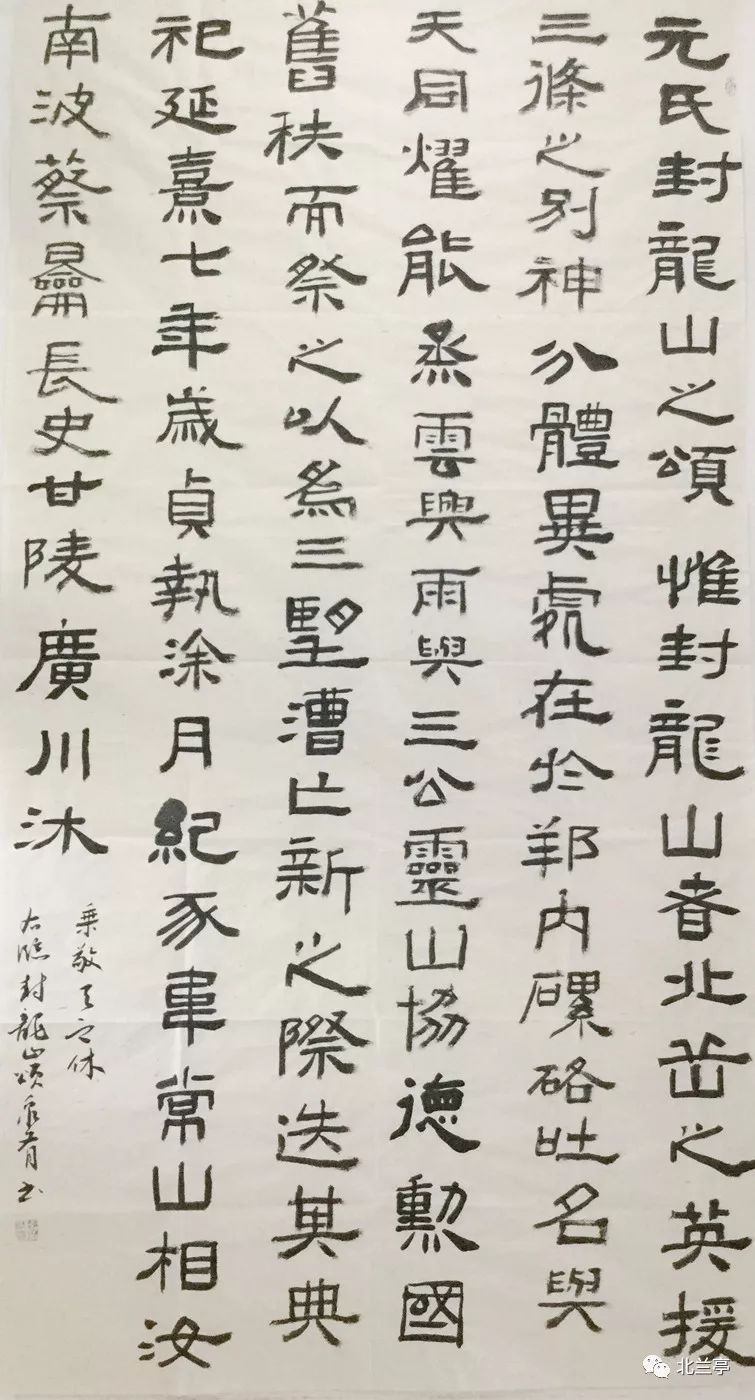 元氏封龍山之頌惟封龍山者北岳之英援
三條之別神分體異處在於邦內磥硌吐名與
天同燿能烝雲興雨與三公靈山協德勳國
舊秩而祭之以為三望遭亡新之際迭其典
祀延熹七年歲貞執涂月紀豕韋常山相汝
南波蔡㬇長史甘陵廣川沐
乘敬天之休
右臨封龍山頌 书
北兰亭